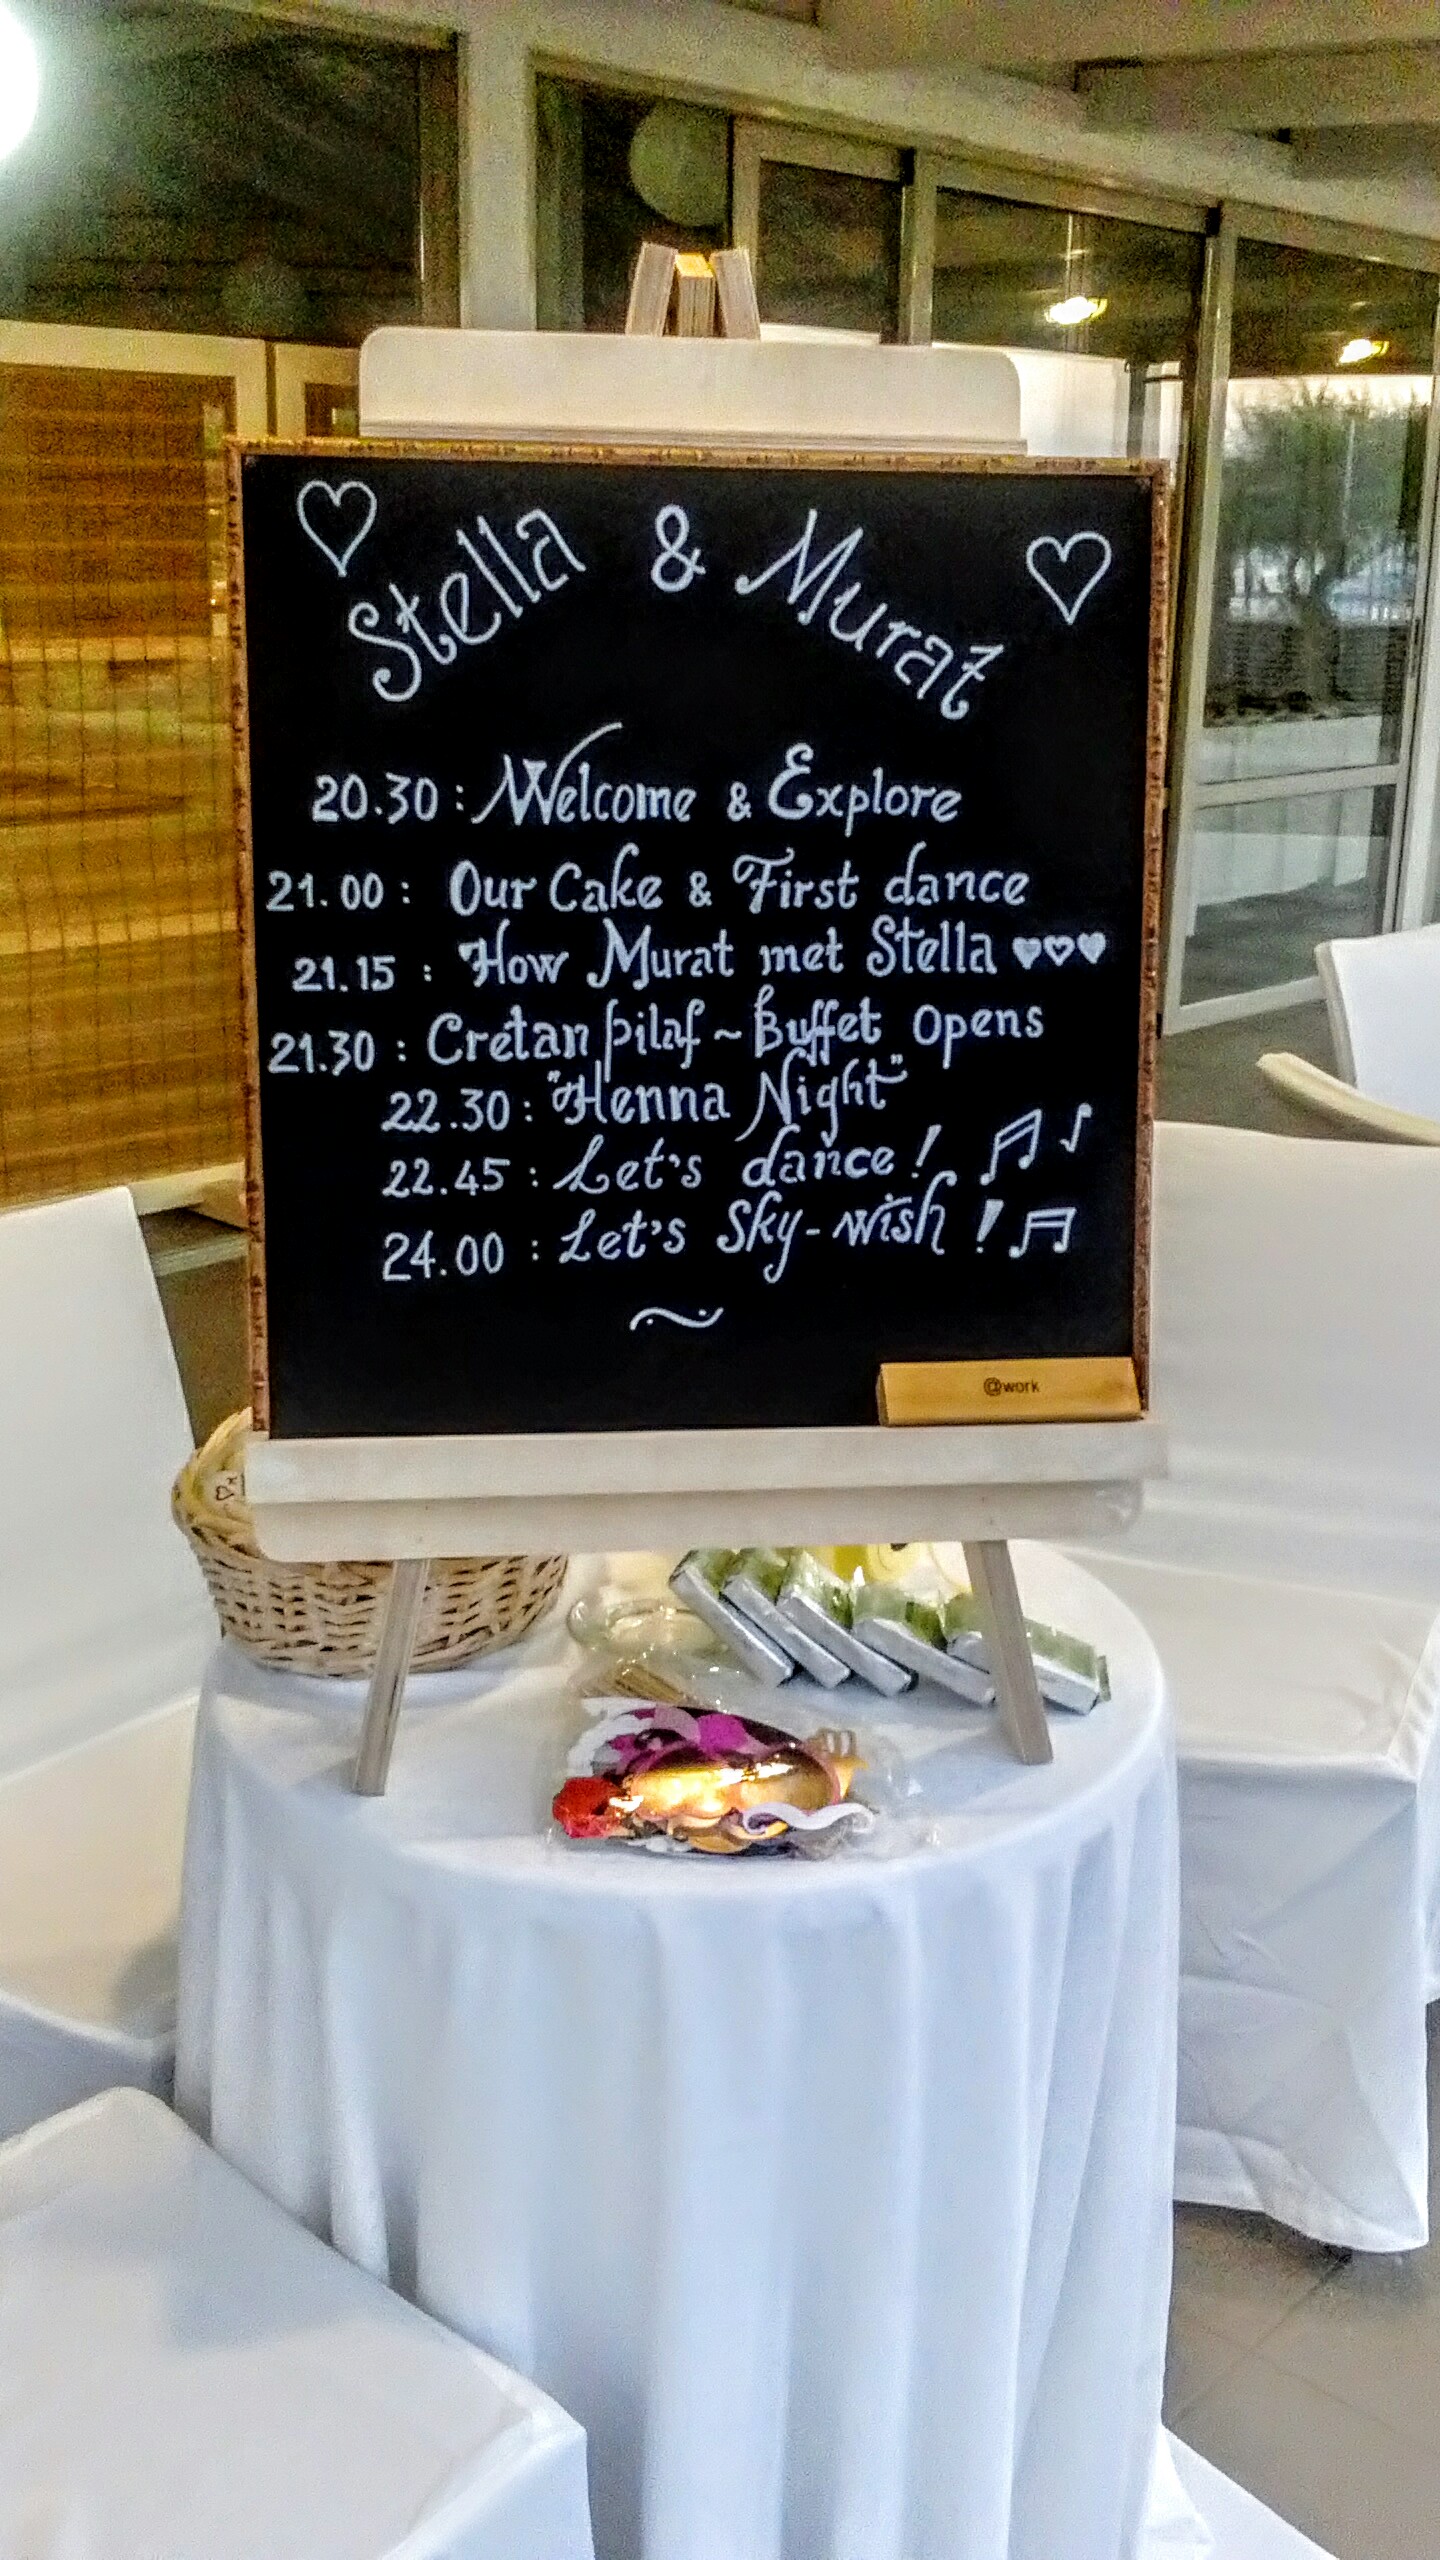 Stella & Murat
20.30 : Welcome & Explore
21.00 : Our Cake & First dance
21.15 : How Murat met Stella ♥♥♥
21.30 : Cretan pilaf ~ Buffet Opens
22.30 : "Henna Night"
22.45 : Let's dance!
24.00 : Let's Sky-wish!
@work